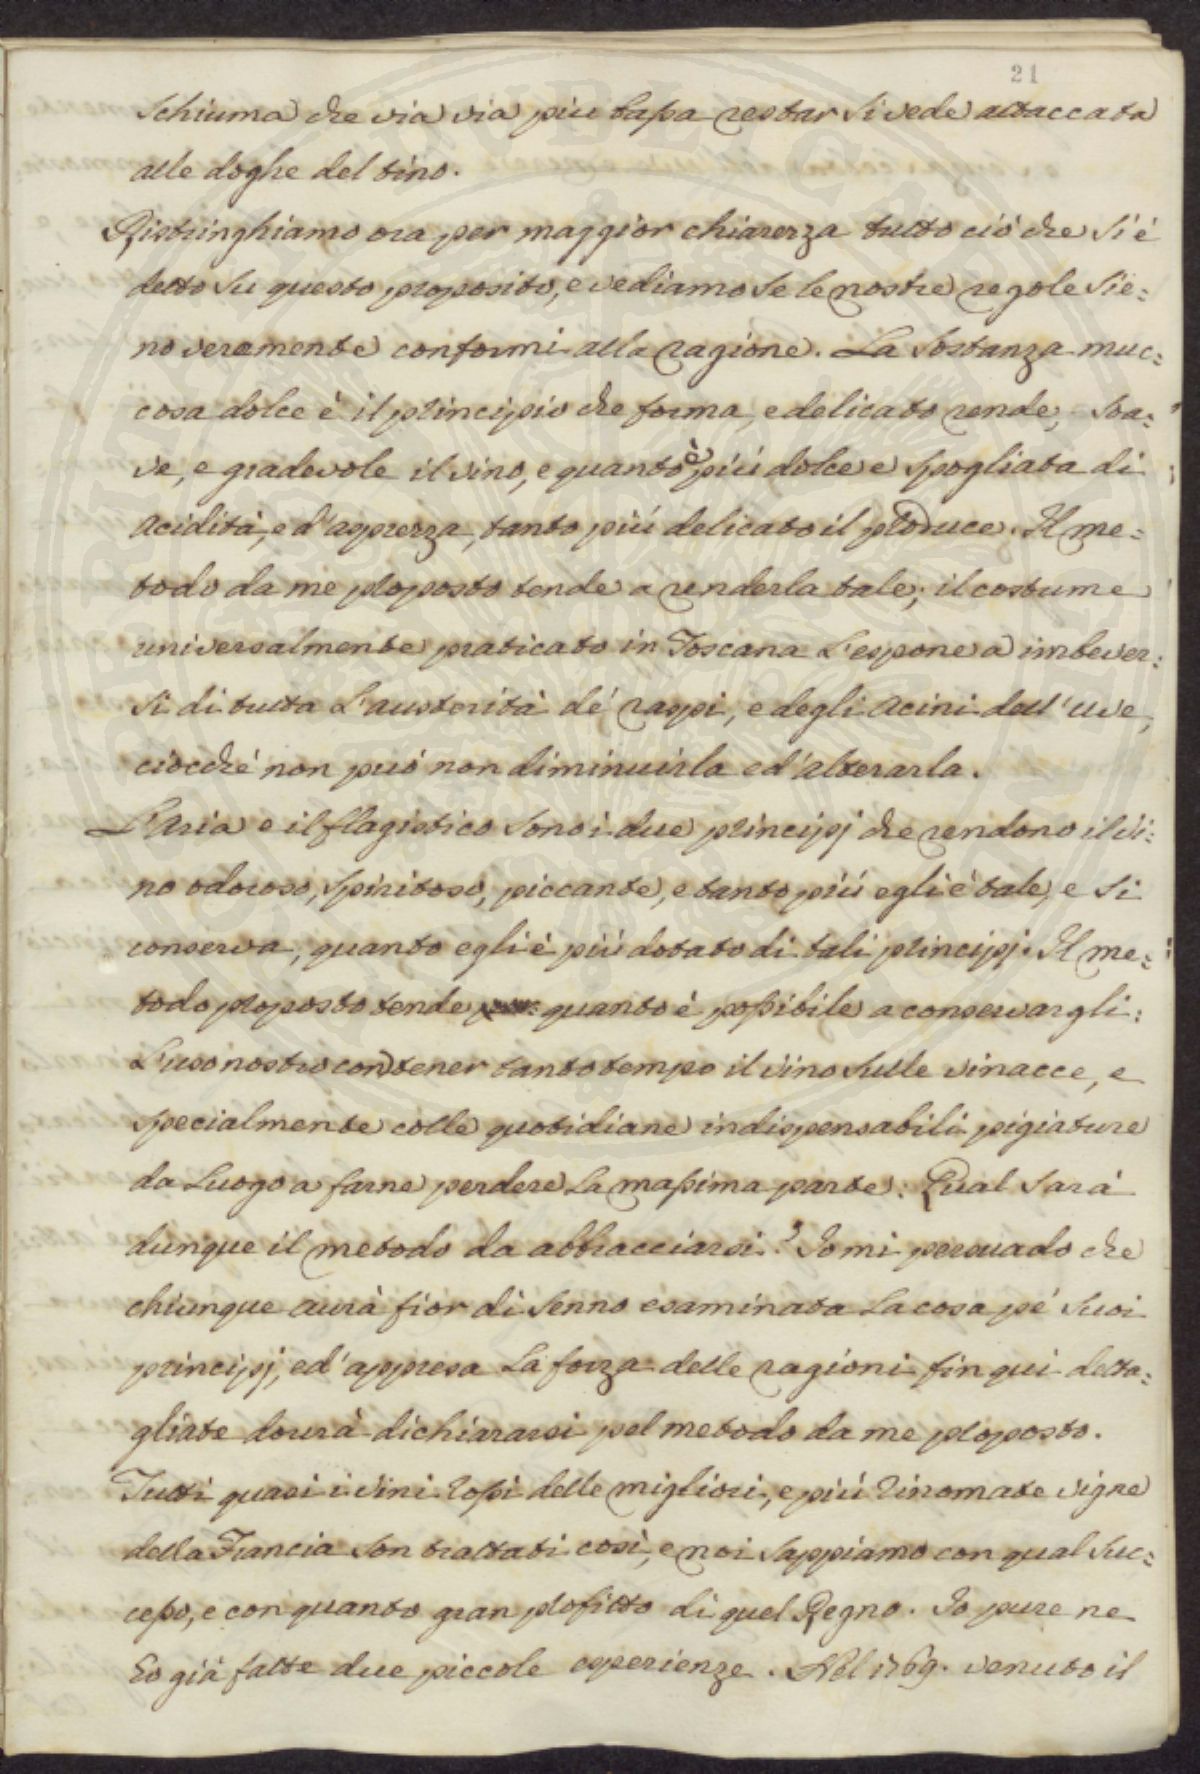 21
Schiuma che via via più bassa restar si vede attaccata
alle doghe del tino.
Ristringhiamo ora per maggior chiarezza tutto ciò che si è
detto su questo proposito, e vediamo se le nostre regole sie=
no veramente conformi alla ragione. La sostanza muc=
cosa dolce è il principio che forma, e delicato rende, soa=
ve, e gradevole il vino, e quanto è più dolce e spogliata di
acidità, e d'asprezza, tanto più delicato il produce. Il me=
todo da me proposto tende a renderla tale; il costume
universalmente praticato in Toscana L'espone a imbever=
si di tutta L'austerità dé raspi, e degli acini dell'uve,
ciocché non può non diminuirla ed'alterarla.
L'Aria e il flagistico sono i due principj che rendono il vi=
no odoroso, spiritoso, piccante, e tanto più egli è tale, e si
conserva, quanto egli è più dotato di tali principj. Il me=
todo proposto tende quanto è possibile a conservargli:
L'uso nostro con tener tanto tempo il vino sulle vinacce, e
specialmente colle quotidiane indispensabili pigiature
da Luogo a farne perdere La massima parte. Qual sarà
dunque il metodo da abbracciarsi? Io mi persuado che
chiunque avrà fior di senno esaminata La cosa pé suoi
principj, ed'appresa La forza delle ragioni fin qui detta=
gliate dovrà dichiararsi pel metodo da me proposto.
Tutti quasi i vini rossi delle migliori, e più rinomate vigne
della Francia son trattati così, e noi sappiamo con qual suc=
cesso, e con quanto gran profitto di quel Regno. Io pure ne
ho già fatte due piccole esperienze. Nel 1769. venuto il